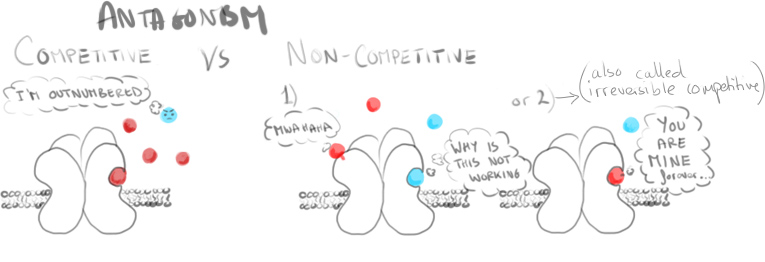 ANTAGONISM
COMPETITIVE VS NON-COMPETITIVE
I'M OUTNUMBERED
1)
MWAHAHA
WHY IS
THIS NOT
WORKING
or 2) → (also called
irreversible competitive)
YOU
ARE
MINE
forever...